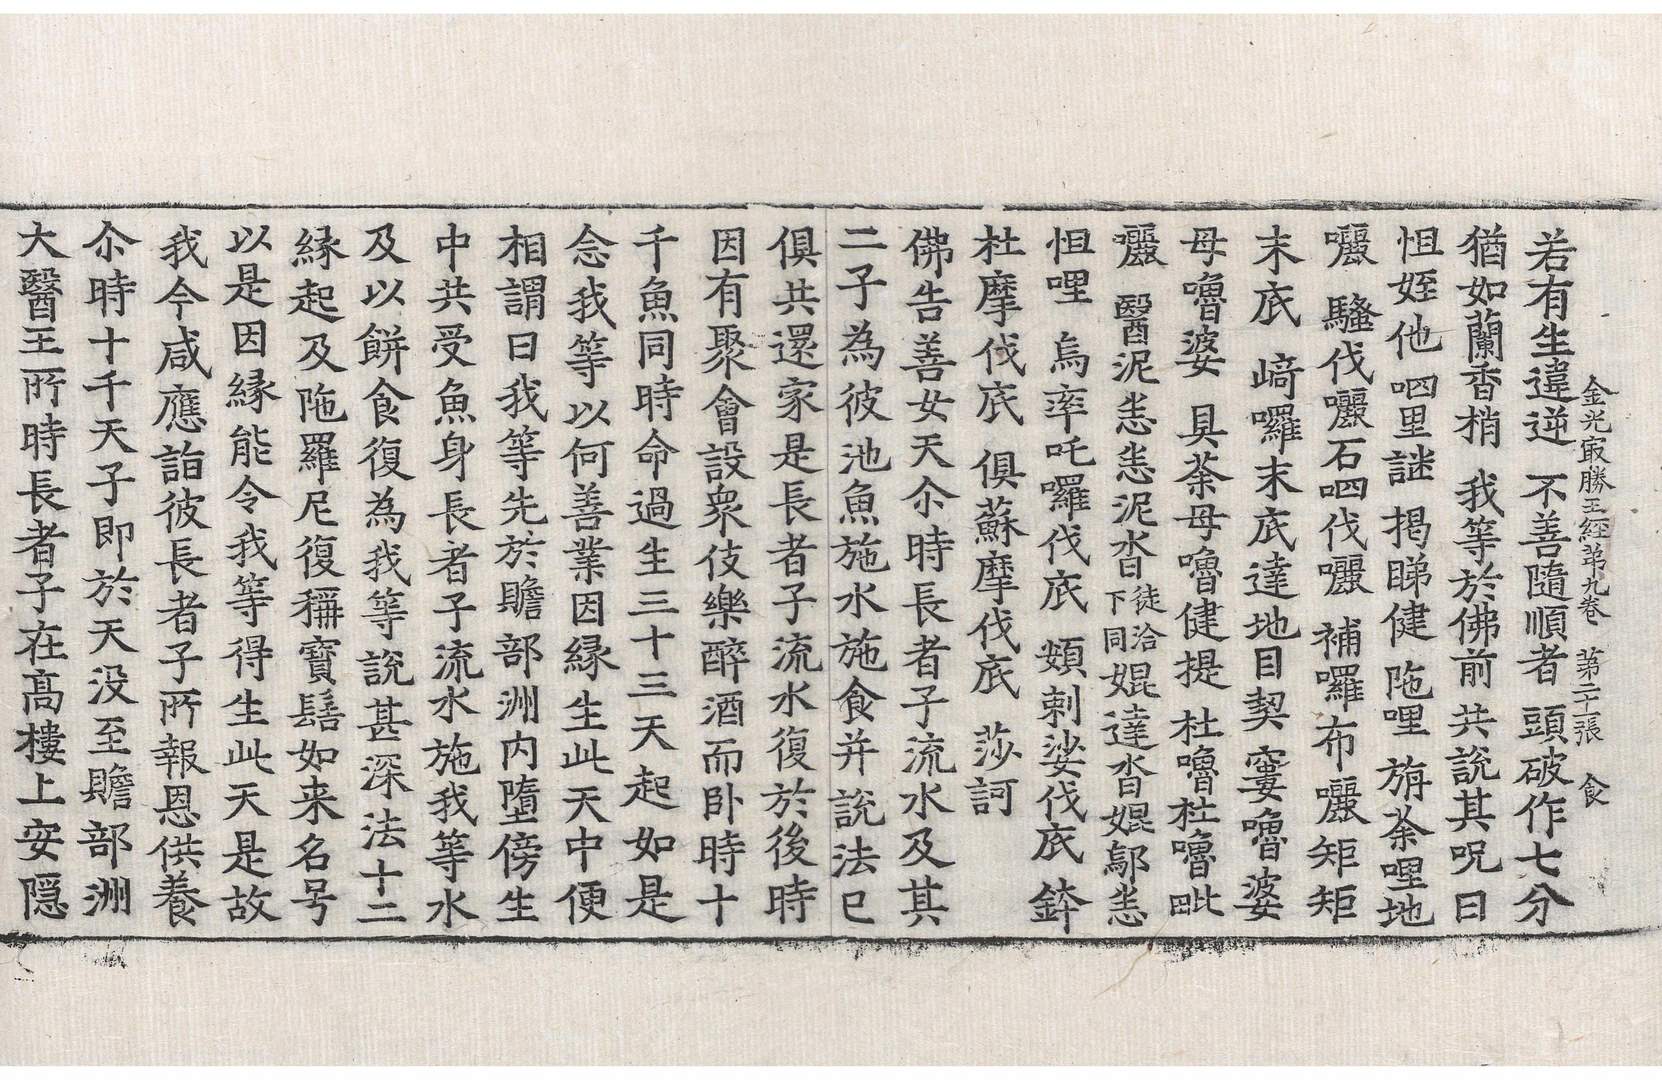 金光㝡勝王經第九卷　第二十張　食
若有生違逆　不善隨順者　頭破作七分
猶如蘭香梢　我等於佛前　共說其呪曰
怛姪他　呬里謎　揭睇健　陁哩　旃荼哩地
囇　騷伐囇石呬伐囇　補囉布囇矩矩
末底　崎囉末底達地目契　窶嚕婆
母嚕婆　具荼母嚕健提　杜嚕杜嚕毗
囇　醫泥悉悉泥沓徒洽下同媲達沓媲鄔悉
怛哩　烏率吒囉伐底　頞剌娑伐底　鉢
杜摩伐底　俱蘇摩伐底　莎訶
佛告善女天尒時長者子流水及其
二子為彼池魚施水施食并說法已
俱共還家是長者子流水復於後時
因有聚會設衆伎樂醉酒而卧時十
千魚同時命過生三十三天起如是
念我等以何善業因緣生此天中便
相謂曰我等先於贍部洲内墮傍生
中共受魚身長者子流水施我等水
及以餅食復為我等說甚深法十二
緣起及陁羅尼復稱寶髻如来名号
以是因緣能令我等得生此天是故
我今咸應詣彼長者子所報恩供養
尒時十千天子即於天没至贍部洲
大醫王所時長者子在髙樓上安隠